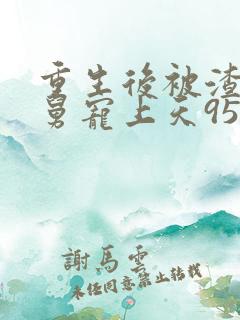 重生後被渣
舅寵上天95
謝馬雲
未任同意禁止轉載